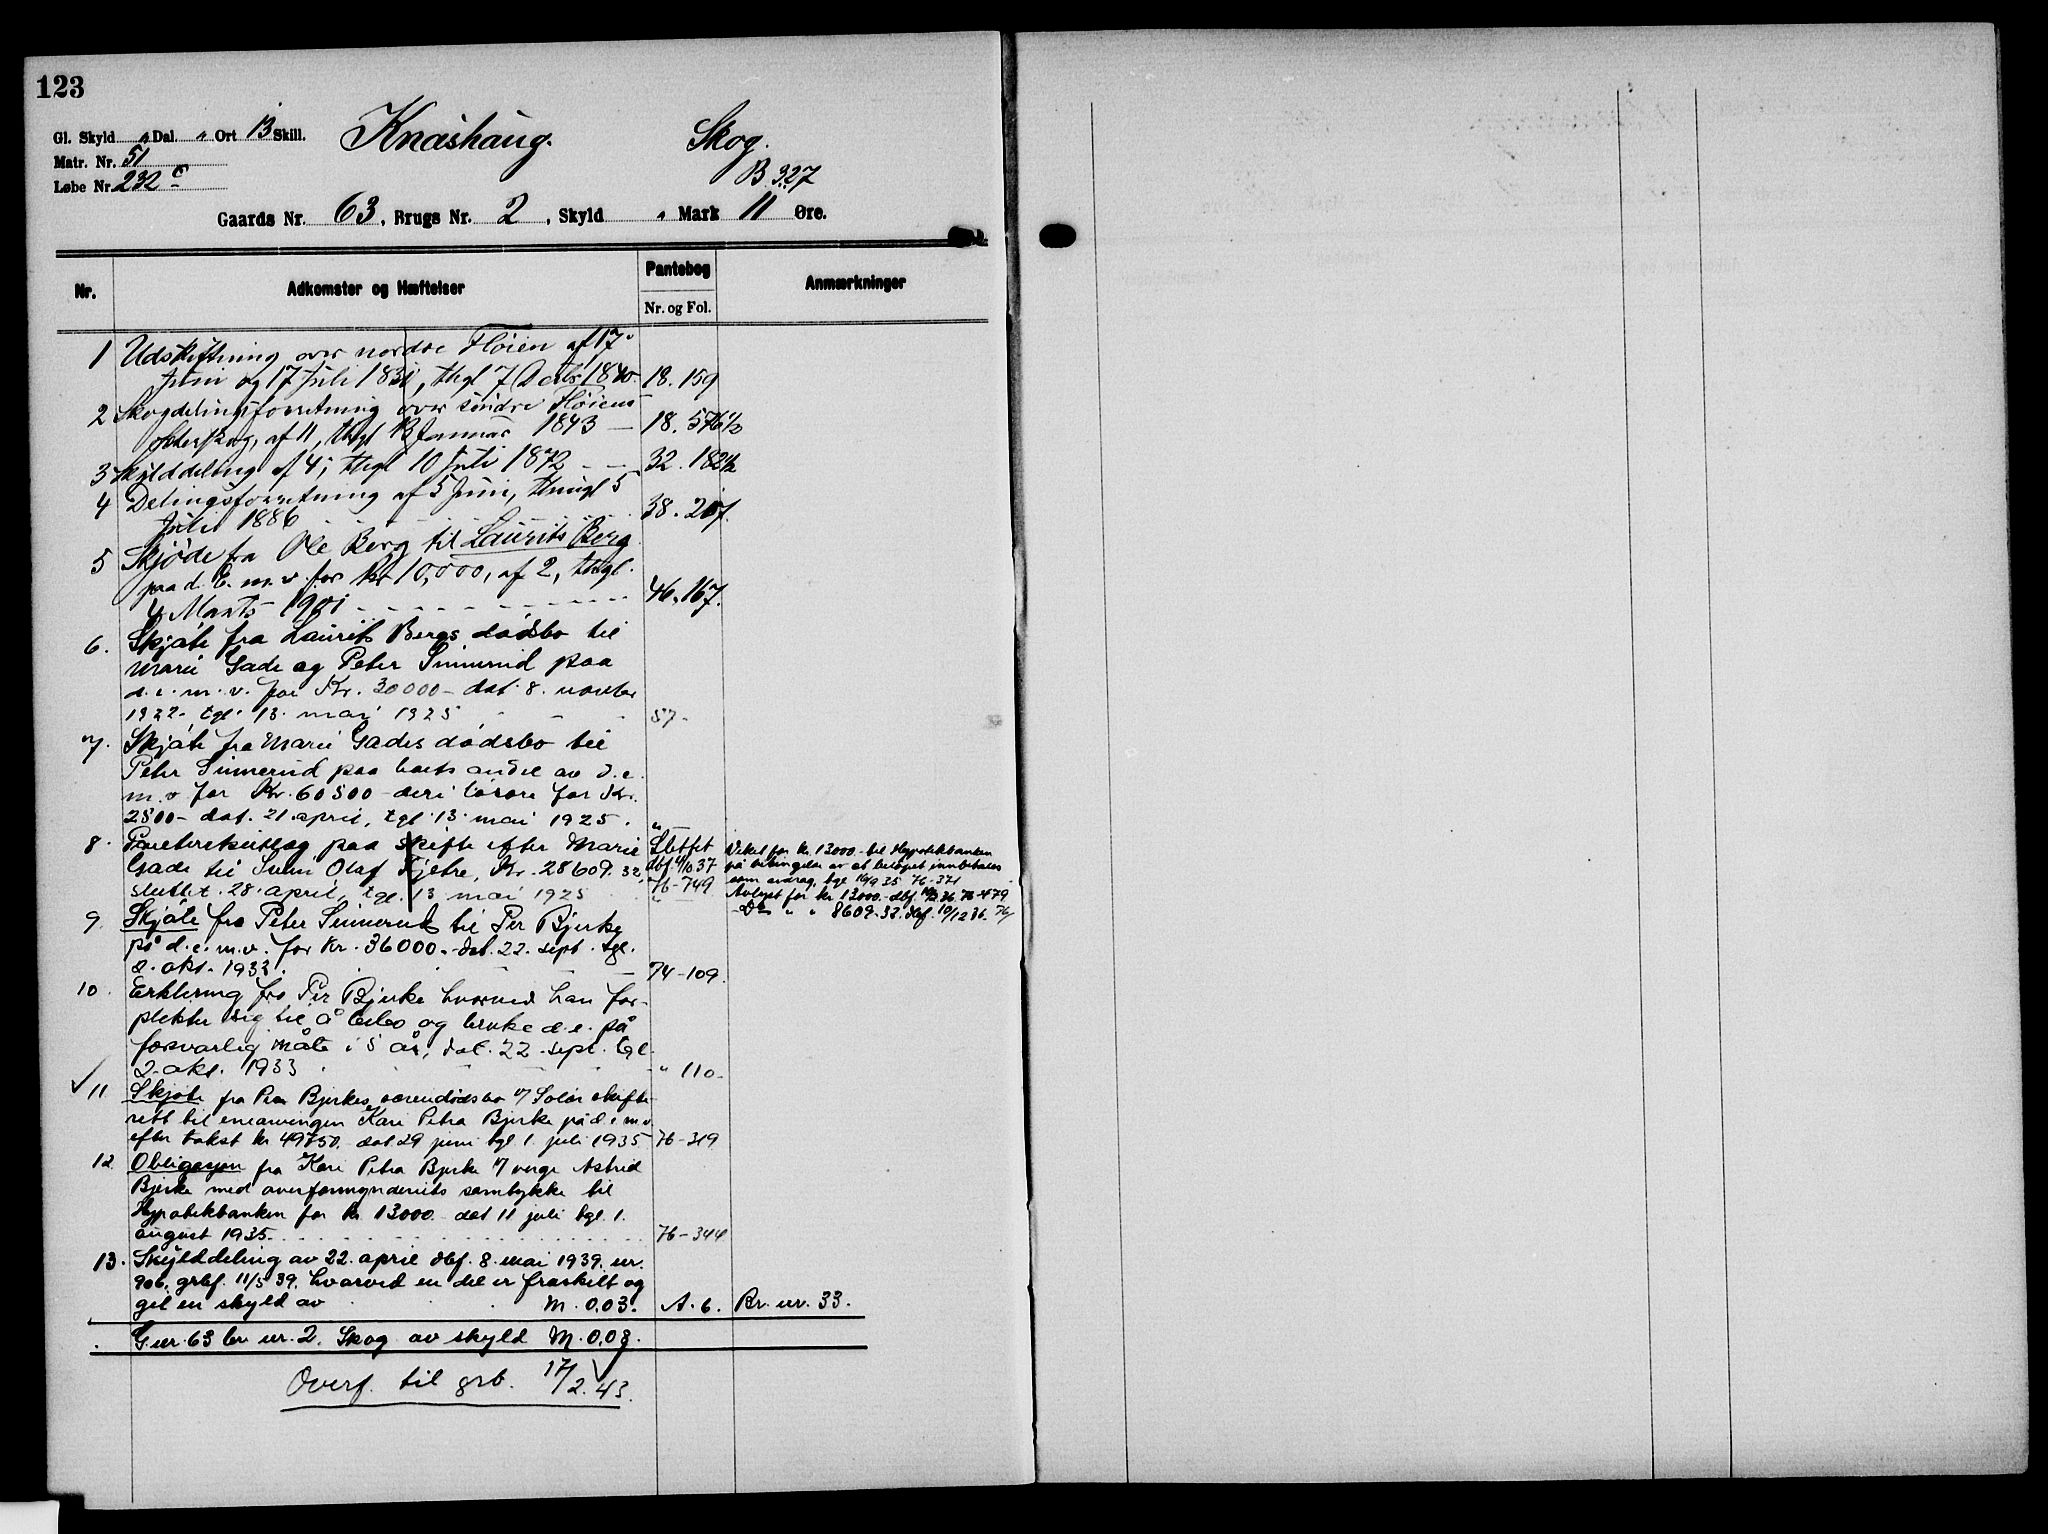 123
Gl. Skyld „ Dal. „ Ort 13 Skill. Knashaug. Skog.
Matr. Nr. 51
Løbe Nr. 232 c B 327
Gaards Nr. 63, Brugs Nr. 2, Skyld „ Mark 11 Øre.
Nr. Adkomster og Hæftelser Pantebog Anmærkninger
Nr. og Fol.
1 Udskiftning over nordre Fløien af 17
Juni og 17 Juli 183, thgl 7 Decbr 1840. 18. 159
2 Skogdelingsforretning over søndre Fløiens
østerskog, af 11, thgl 13 Januar 1843 — 18. 576 1/2
3 Skylddeling af 4, thgl 10 Juli 1872 — — 32. 182 1/2
4 Delingsforretning af 5 Juni, thingl 5
Juli 1886 38. 207.
5 Skjøde fra Ole Berg til Laurits Berg
paa d. E. m. v. for Kr 10,000, af 2, thgl.
4 Marts 1901 46. 167.
6. Skjøte fra Laurits Bergs dødsbo til
Marie Gade og Peter Sinnerud paa
d. e. m. v. for Kr. 30000 – dat. 8. novbr
1922. tgl. 13. mai 1925 57 –
7. Skjøte fra Marie Gades dødsbo til
Peter Sinnerud paa boets andel av d. e.
m. v for Kr. 60500 – deri løsøre for Kr.
2500 – dat. 21. april, tgl. 13. mai 1925. „
8. Panteretsutlæg paa skifte efter Marie Slettet
Gade til Svein Olaf Fjeldre, Kr. 28609.32, dbf 4/10 37
sluttet 28. april, tgl. 13 mai 1925 76 – 749
„
Veket for kr. 13000 – til Hypotekbanken
på betingelse av at beløpet innbetales
som avdrag, tgl. 16/9 35 76 – 371
Avlyst for kr 13000. dbf. 36. 76 – 479
Do „ „ 8609.32. dbf. 10/12 36. 76/
9. Skjøte fra Peter Sinnerud til Per Bjerke
på d. e. m. v. for Kr. 36000. – dat. 22. sept. tgl.
2. okt. 1933. 74 – 109.
10. Erklering fra Per Bjerke hvorved han for-
plekter sig til å bebo og bruke d. e. på
forsvarlig måte i 5 år, dat. 22. sept. tgl.
2. okt. 1933 „ 110 –
11 Skjøte fra Per Bjerkes særendødsbo v/ Solør skifte-
rett til enearvingen Kari Petra Bjerke på d. e m. v.
efter takst kr 49750. dat 29 juni tgl. 1. juli 1935 76 – 319
12. Obligasjon fra Kari Petra Bjerke v/ verge Astrid
Bjerke med overformynderiets samtykke til
Hypotekbanken for kr 13000. – dat 11 juli tgl. 1.
august 1935. 76 – 344
13. Skylddeling av 22. april dbf. 8. mai 1939. nr.
906. grbf. 11/5 39. hvorved en del er fraskilt og
gitt en skyld av M. 0.03. A. 6. Br. nr. 33.
G. nr. 63 br. nr. 2. Skog av skyld M. 0.08.
Overf. til grb. 17/2. 43.